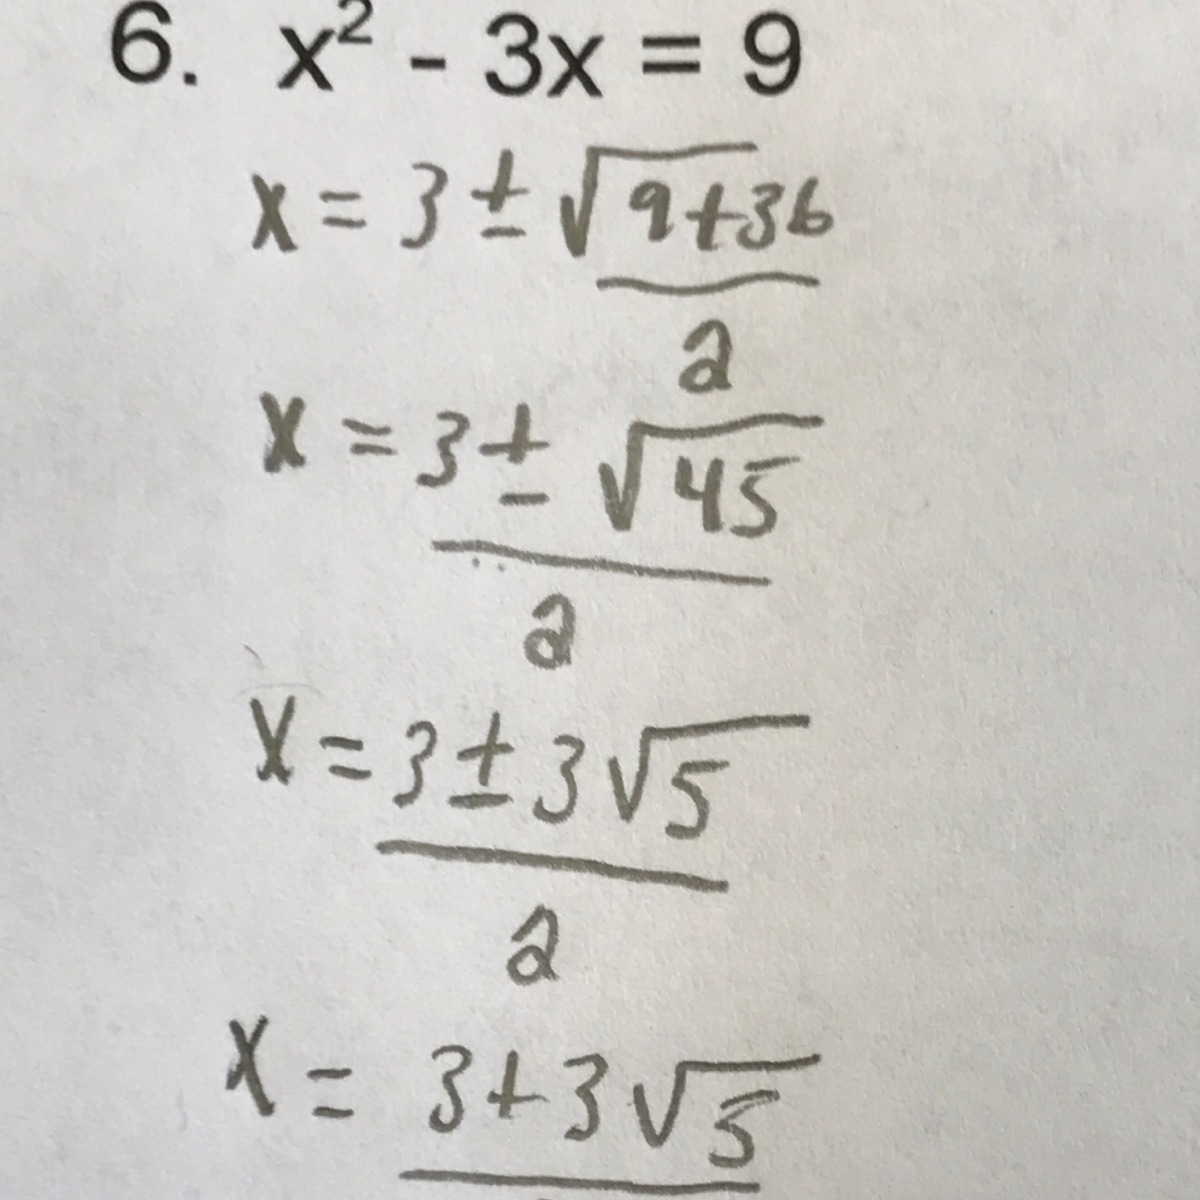 6. x² - 3x = 9
x = 3 ± √9+36
2
x = 3 ± √45
2
x = 3 ± 3√5
2
x = 3 + 3√5